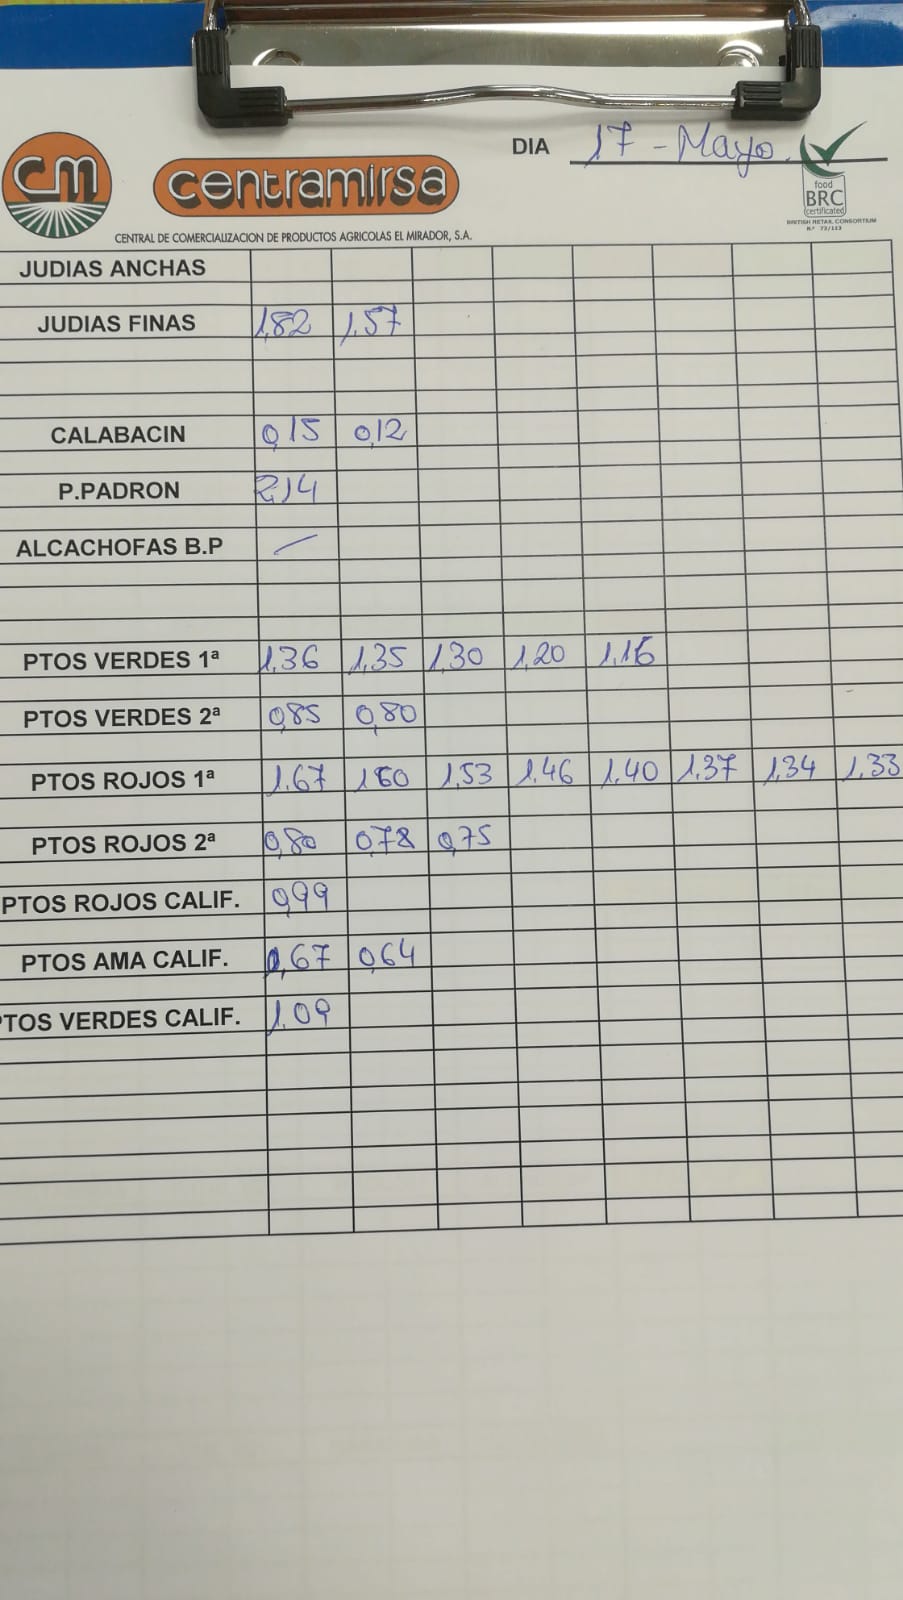 DIA 17 - Mayo.
cm centramirsa
food
BRC
certificated
BRITISH RETAIL CONSORTIUM
N.º 72/113
CENTRAL DE COMERCIALIZACION DE PRODUCTOS AGRICOLAS EL MIRADOR, S.A.
JUDIAS ANCHAS
JUDIAS FINAS 1,82 1,57
CALABACIN 0,15 0,12
P.PADRON 2,14
ALCACHOFAS B.P —
PTOS VERDES 1ª 1,36 1,35 1,30 1,20 1,16
PTOS VERDES 2ª 0,85 0,80
PTOS ROJOS 1ª 1,67 1,60 1,53 1,46 1,40 1,37 1,34 1,33
PTOS ROJOS 2ª 0,80 0,78 0,75
PTOS ROJOS CALIF. 0,99
PTOS AMA CALIF. 0,67 0,64
PTOS VERDES CALIF. 1,09